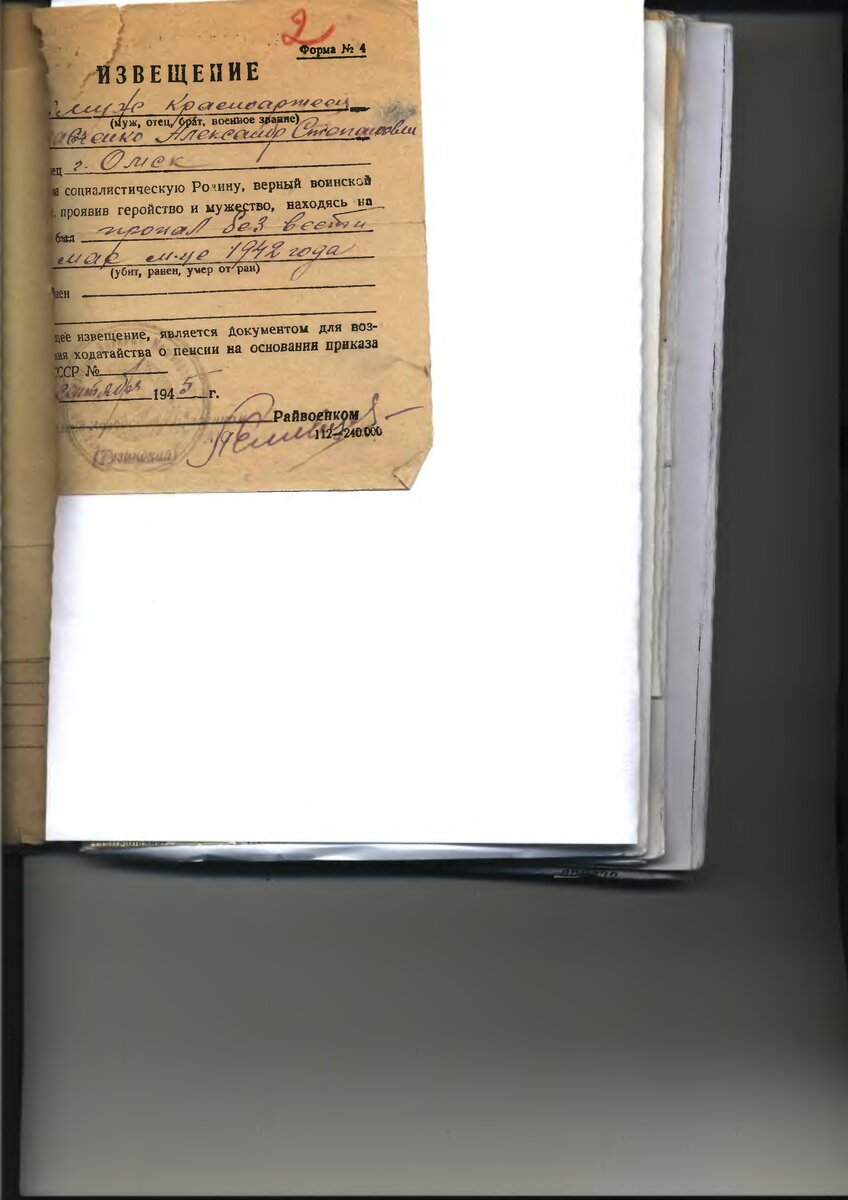 2
Форма № 4
ИЗВЕЩЕНИЕ
муж красноармеец
(муж, отец, брат, военное звание)
авченко Александр Степанович
ец г. Омск
на социалистическую Родину, верный воинской
, проявив геройство и мужество, находясь на
был пропал без вести
мае м-це 1942 года
(убит, ранен, умер от ран)
нен
щее извещение, является документом для воз-
ия ходатайства о пенсии на основании приказа
СССР №
сентября 1945 г.
Райвоенком
112—240.000